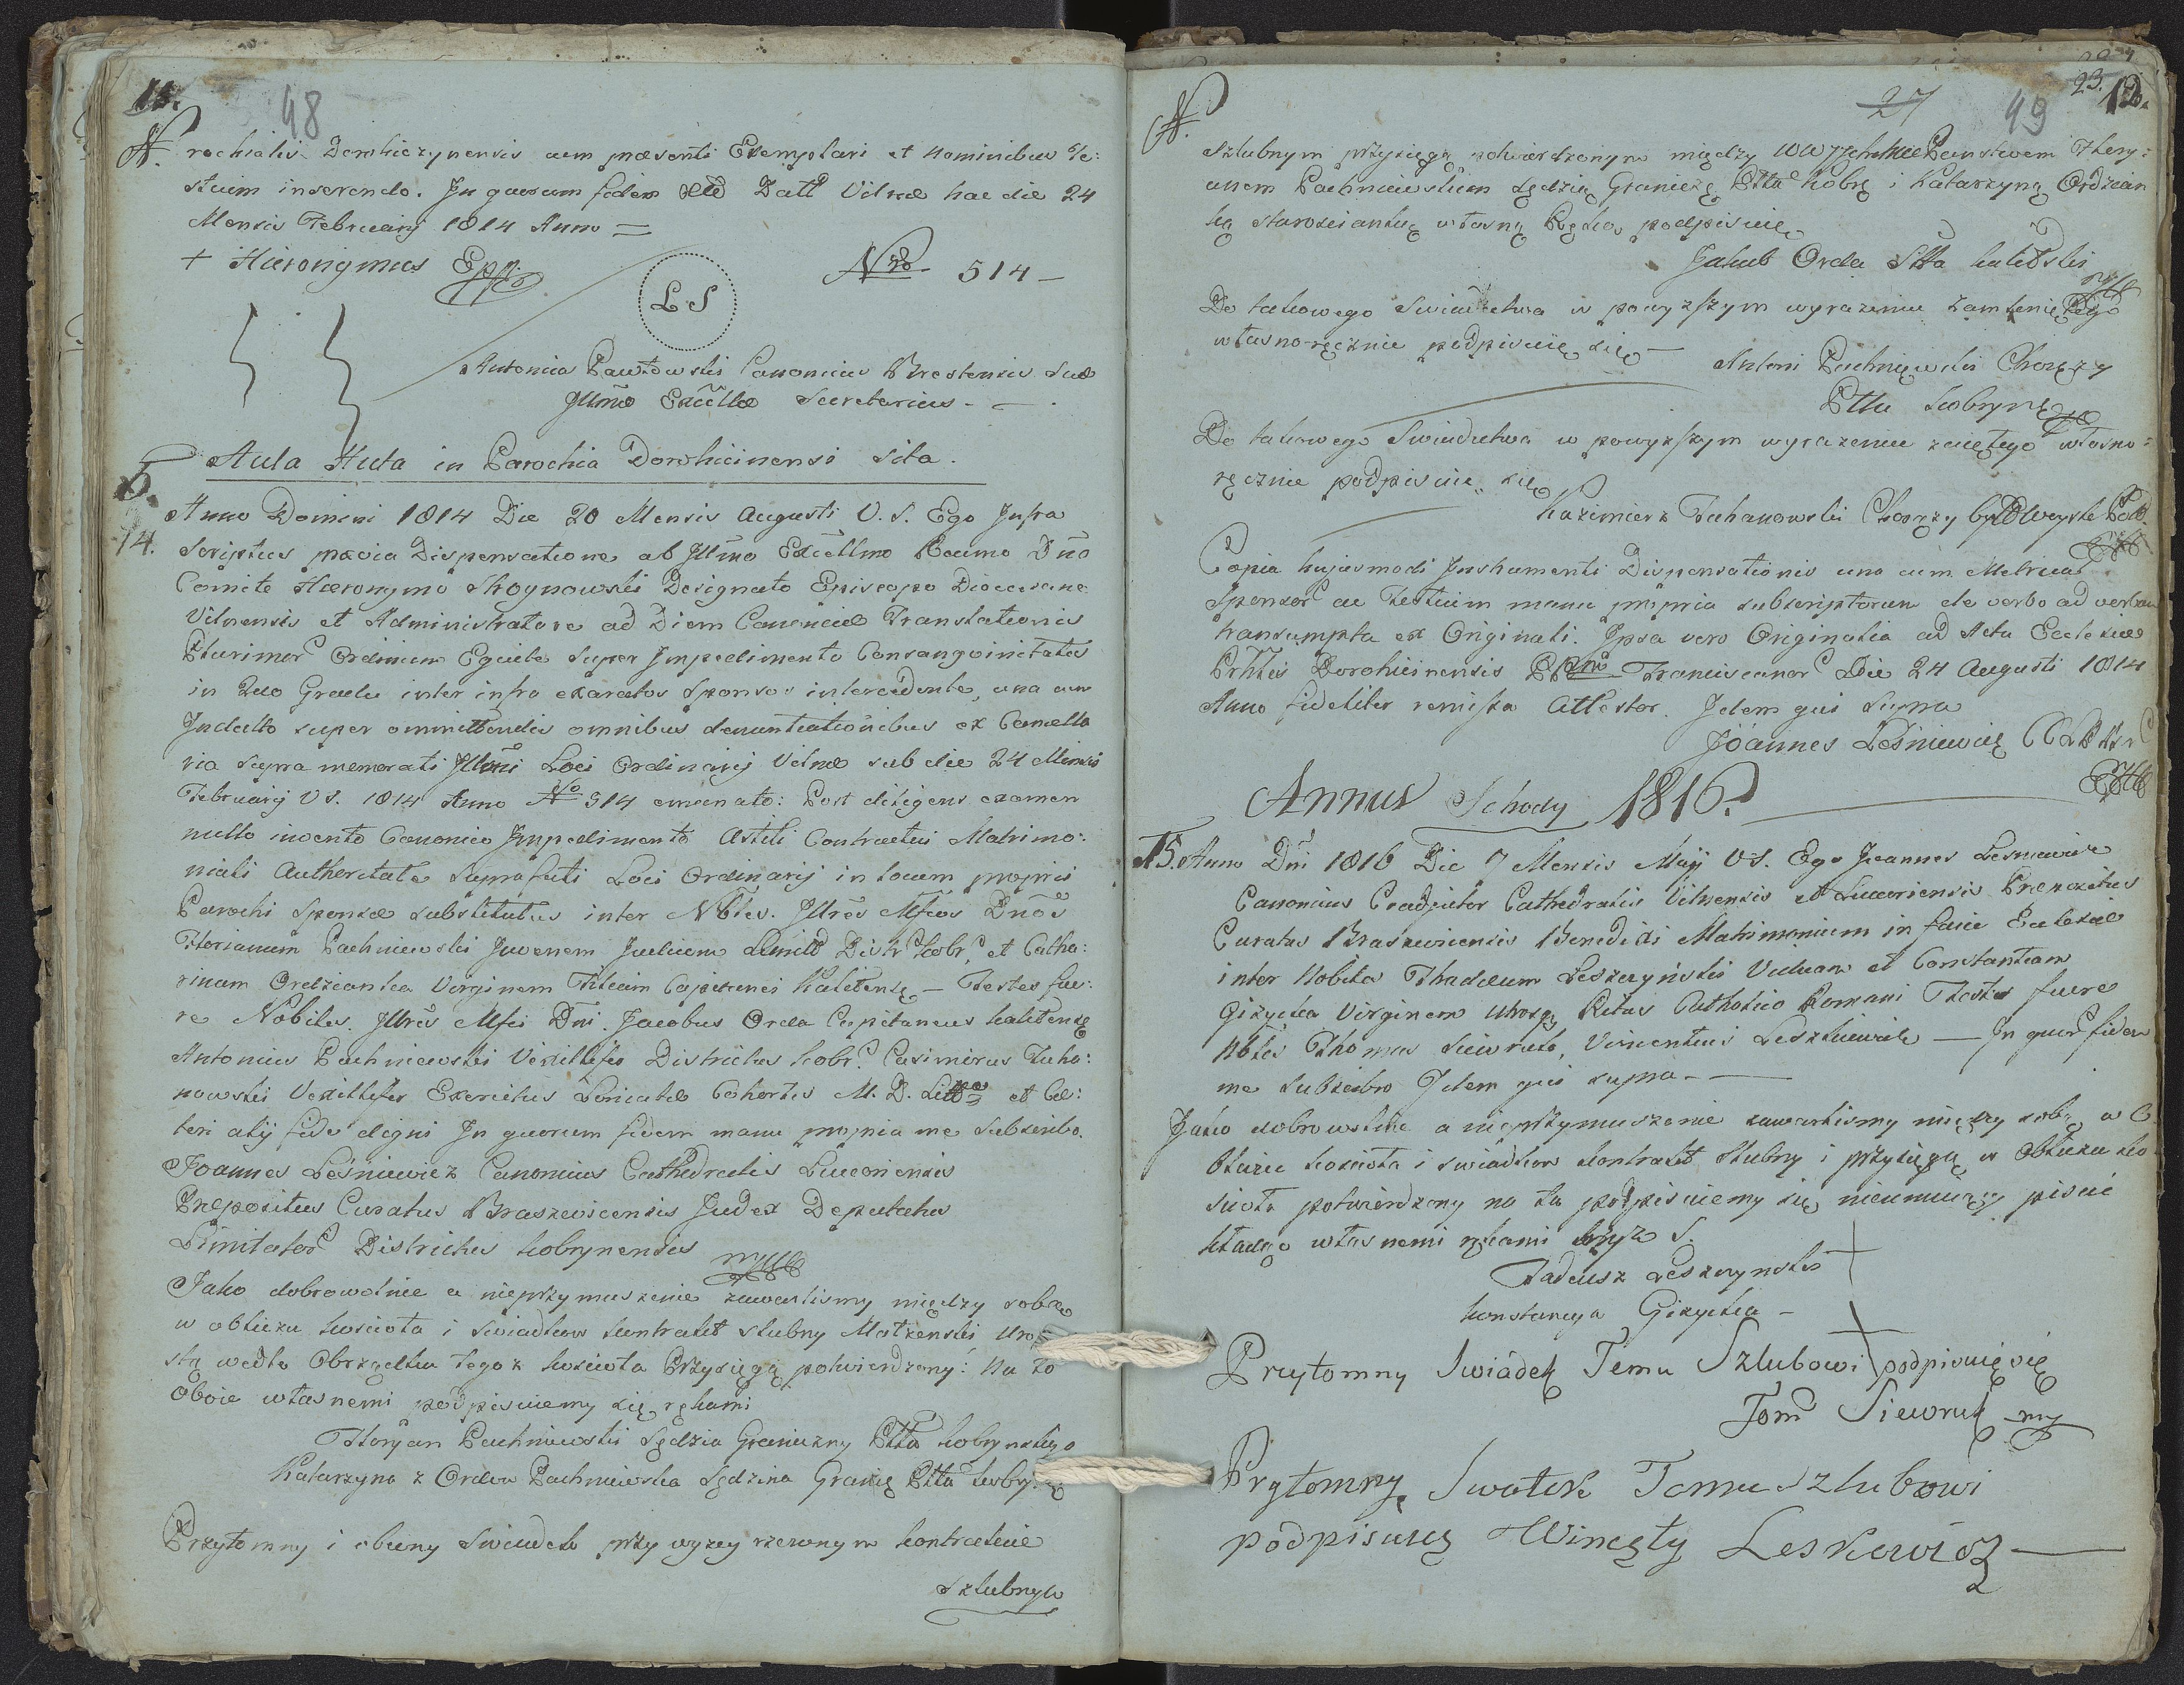 11. 48
N. rochialis Dorohiczynensis cum præsenti Exemplari et nominibus Te:
stium inserendo. In quorum fidem Datt Vilnæ hac die 24
Mensis Februarij 1814 Anno =
+ Hieronymus Epp.
Nro 514 –
L S
Antonius Pawłowski Canonicus Brestensis Suæ
Illmæ Excellæ Secretarius. —
Aula Huta in Parochia Dorohicinensi sita.
5.
14. Anno Domini 1814 Die 20 Mensis Augusti V. S. Ego Infra
Scriptus prævia Dispensatione ab Illmo Excellmo Rssmo Dno
Comite Hieronymo Stroynowski Designato Episcopo Dioecesano
Vilnensis et Administratore ad Diem Canonicæ Translationis
Plurimor Ordinum Equite super Impedimento Consanguinitatis
in 2do Gradu inter infra exaratos Sponsos intercedente, una cum
Indulto super ommittendis omnibus denuntiationibus ex Cancella
ria supra memorati Illmi Loci Ordinarij Vilnæ sub die 24 Mensis
Februarij VS. 1814 Anno No 514 emanato: Post diligens examen
nullo invento Canonico Impedimento Astiti Contractui Matrimo:
niali Authoritate Suprafati Loci Ordinarij in locum proprii
Parochi Sponsæ substitutus inter Nbles. Illres Mfcos Dnos
Florianum Pachniewski Juvenem Judicem Limitt Distr Kobr, et Catha:
rinam Ordzianka Virginem Filiam Capitanei Kalitensę – Testes fue:
re Nobiles. Illres Mfci Dni. Jacobus Orda Capitaneus Kalitensę
Antonius Pachniewski Vexillifer Districtus Kobr. Casimirus Tucha:
nowski Vexillifer Exercitus Loricatæ Cohortis M. D. Litt et Cæ:
teri alij fide digni In quorum fidem manu propria me Subscribo.
Joannes Leśniewicz Canonicus Cathedralis Luceoriensis
Præpositus Curatus Braszewicensis Judex Deputatus
Limitator Districtus Kobrynensis mpp
Jako dobrowolnie a nieprzymuszenie zawarlismy między sobą
w obliczu kosciota i swiadkow kontrakt slubny Małżenski Uro:
stą wedle Obrządku tegoz kosciota Przysięgą potwierdzony: Na to
Oboie własnemi podpisuiemy się rękami
Floryan Pachniewski Sędzia Graniczny Pttu Kobrynskiego
Katarzyna z Ordow Pachniewska Sędzina Granię Pttu Kobryń
Przytomny i obecny Swiadek przy wyzey rzeczonym kontrakcie
szlubnym
27 49 23. 12.
N. szlubnym przysięgą potwierdzonym między WW Państwem Flory:
anem Pachniewskim Sędzią Granicz Pttu Kobr i Katarzyną Ordzian
ką Starościanką własną Ręką podpisuię
Jakub Orda Stta kalitski
mpp
Do takowego Swiadectwa w powyzszym wyrazeniu zamkniętego
własno-ręcznie podpisuię się —
Antoni Pachniewski Chorązy
Pttu Kobryn
Do takowego Swiadectwa w powyzszym wyrazeniu zawętego własno:
ręcznie podpisuie się
Kazimierz Tuchanowski Chorązy był Woyska Pol.
Copia hujusmodi Instrumenti Dispensationis una cum Metrica
Sponsor ac Testium manu propria subscriptorum de verbo ad verbum
transumpta ex Originali. Ipsa vero Originalia ad Acta Ecclesiæ
Prhtis Dorohicinensis PP Franciscanor Die 24 Augusti 1814
Anno fideliter remissa Attestor. Idem qui Supra
Joannes Leśniewicz
Annus Schody 1816.
15. Anno Dni 1816 Die 7 Mensis Maij VS. Ego Joannes Lesniewicz
Canonicus Coadjutor Cathedralis Vilnensis et Luceoriensis Præpositus
Curatus Braszewicensis Benedixi Matrimonium in facie Ecclesiæ
inter Nobiles Thadæum Leszczyński Viduum et Constantiam
Giżycka Virginem utrosq Ritus Catholico Romani Testes fuere
Nbles Thomas Siewruk, Vincentius Leszkiewicz — In quor fidem
me Subscribo Idem qui supra —
Jako dobrowolnie a nieprzymuszenie zawarlismy między sobą w O
bliczu kosciota i swiadkow kontrakt Slubny i przysięgą w Obliczu ko
sciota potwierdzony na to podpisuiemy się nieumieiący pisac
kładąc własnemi rękami krzyz S.
Tadeusz Leszczynski +
Konstancya Giżycka – +
Przytomny Swiadek Temu Szlubowi podpisuię się
Tom Siewruk mp
Prytomny Swatek Temu Szlubowi
podpisuię Wincęty Leskewicz —